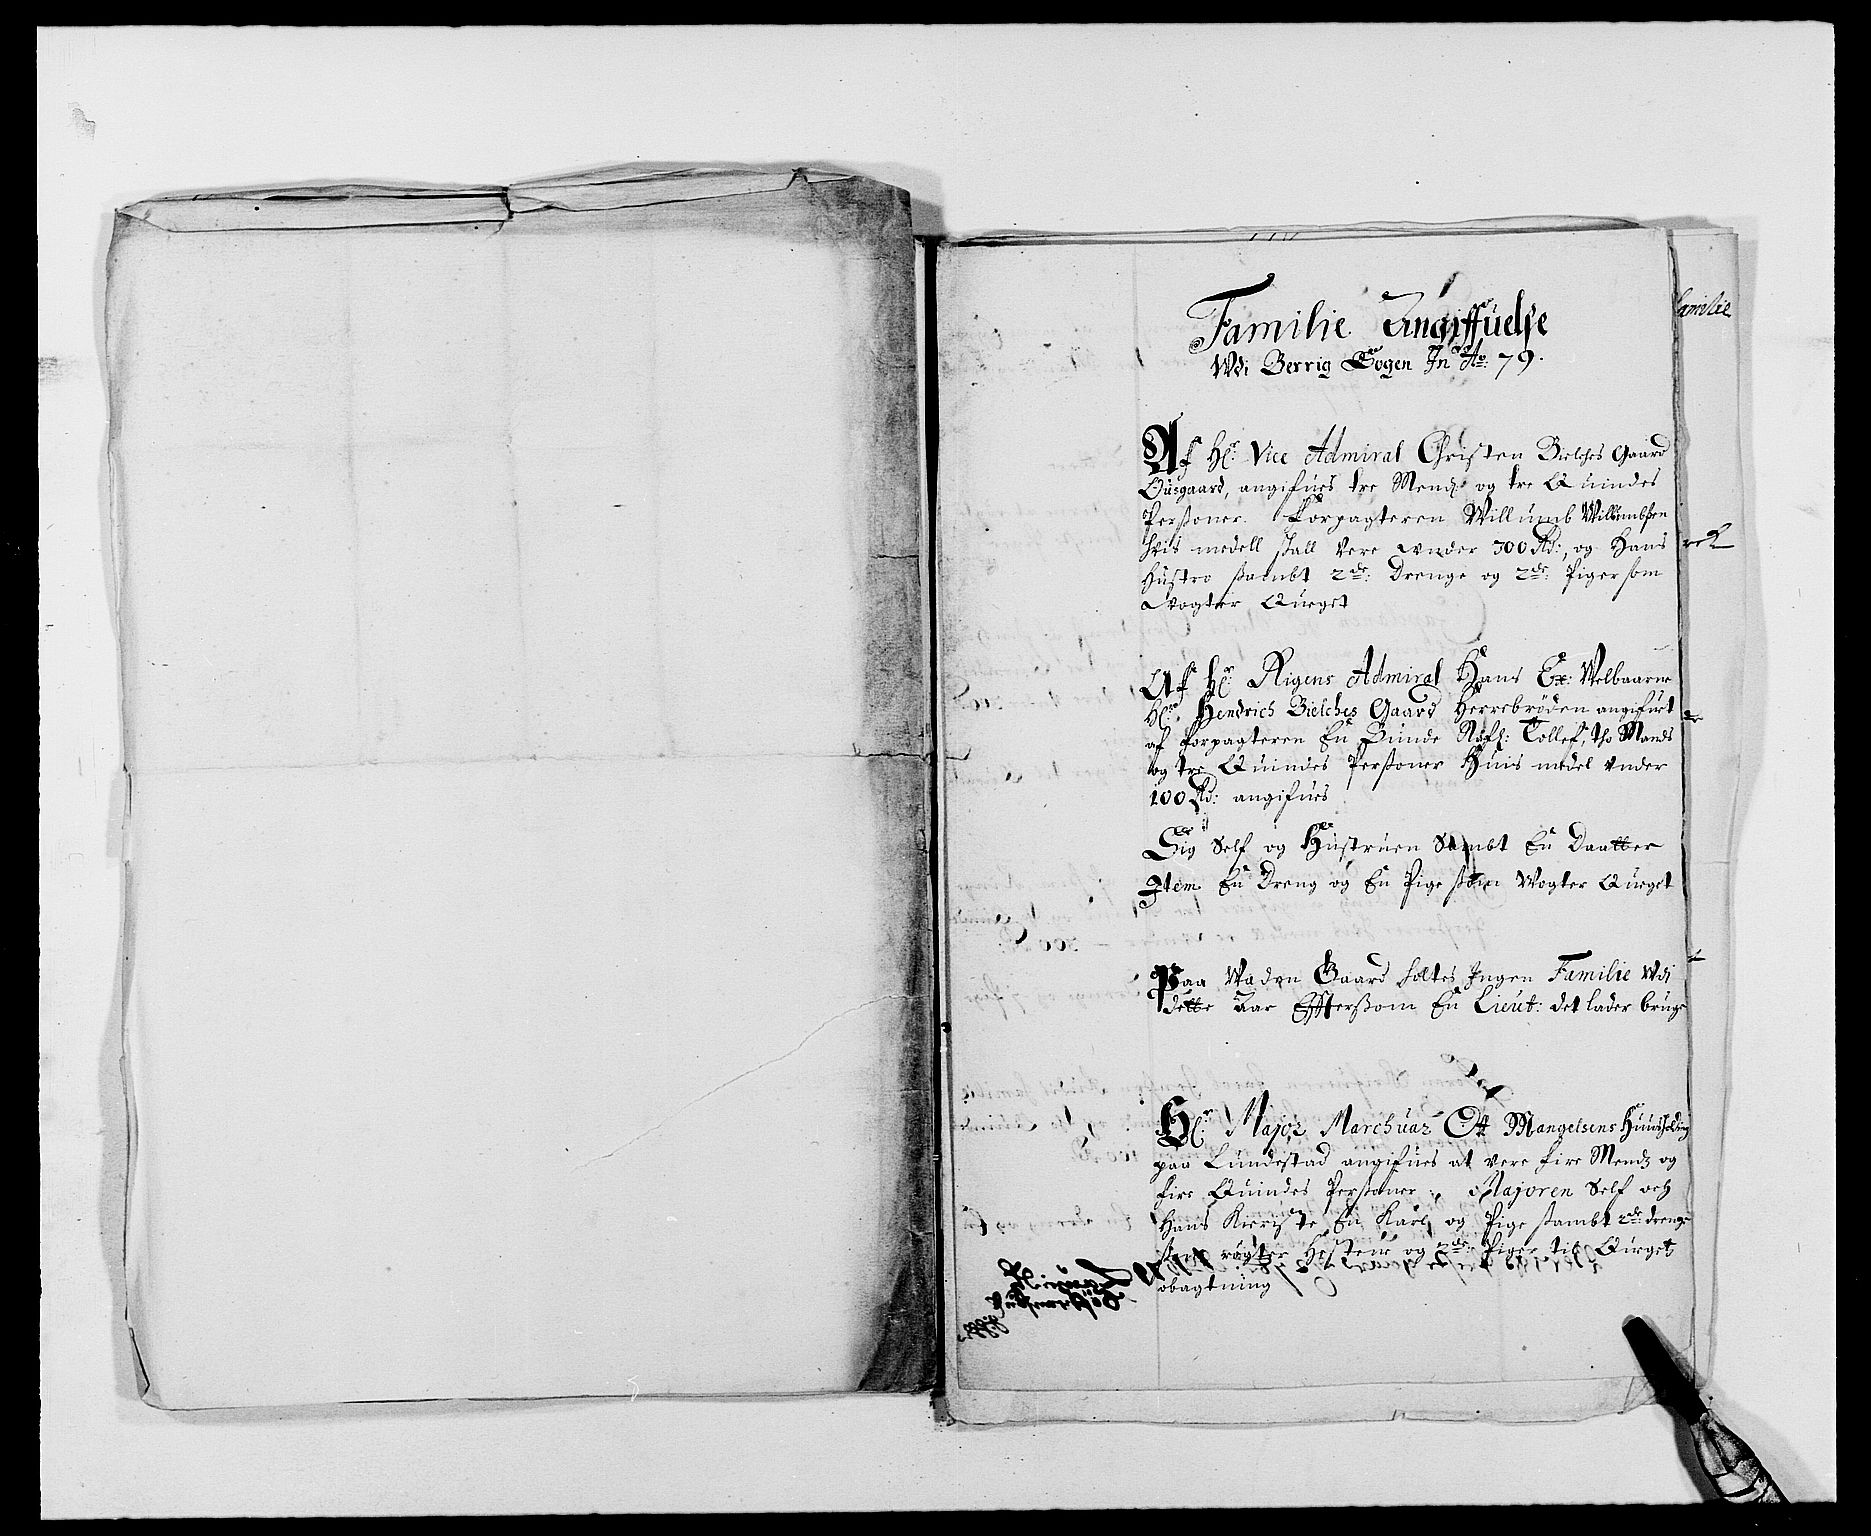 Familie Angiffuelse
Wdi Berrig Sogen In Ao: 79.
Af Hr: Vice Admiral Christen Bielches Gaard
Ousgaard, angifues tre Mend og tre Quindes
Perßoner. Forpagteren Willumb Willumbßen
hvis medell skall vere wnder 300 Rd:, og Hans
Hustro sambt 2de: Drenge og 2de: Piger som
Wogter Qveget
Af Hr: Rigens Admiral Hans Ex: Welbaarne
Hr: Hendrich Bielches Gaard Herrebröden angifuet
af forpagteren En Bunde Tollef, tho Mands
og tre Quindes Perßoner Huis medel vnder
100 Rd: angifues
Sig Self og Hustruen Sambt En Daatter
Item En Dreng og En Pige som Wogter Queget
Paa Waden Gaard holtes Ingen Familie Wdi
dette Aar Effterßom En Lieut: det lader bruge
Hr: Major Marchuar Ott Mangelsens Huusholding
paa Lundestad angifues at vere fire Mend og
fire Quindes Perßoner, Majoren Self och
Hans Kieriste En Karl og Pige sambt 2de drenge
som rögter Hestene og 2de: Piger til Qveget
obagtning
Familie